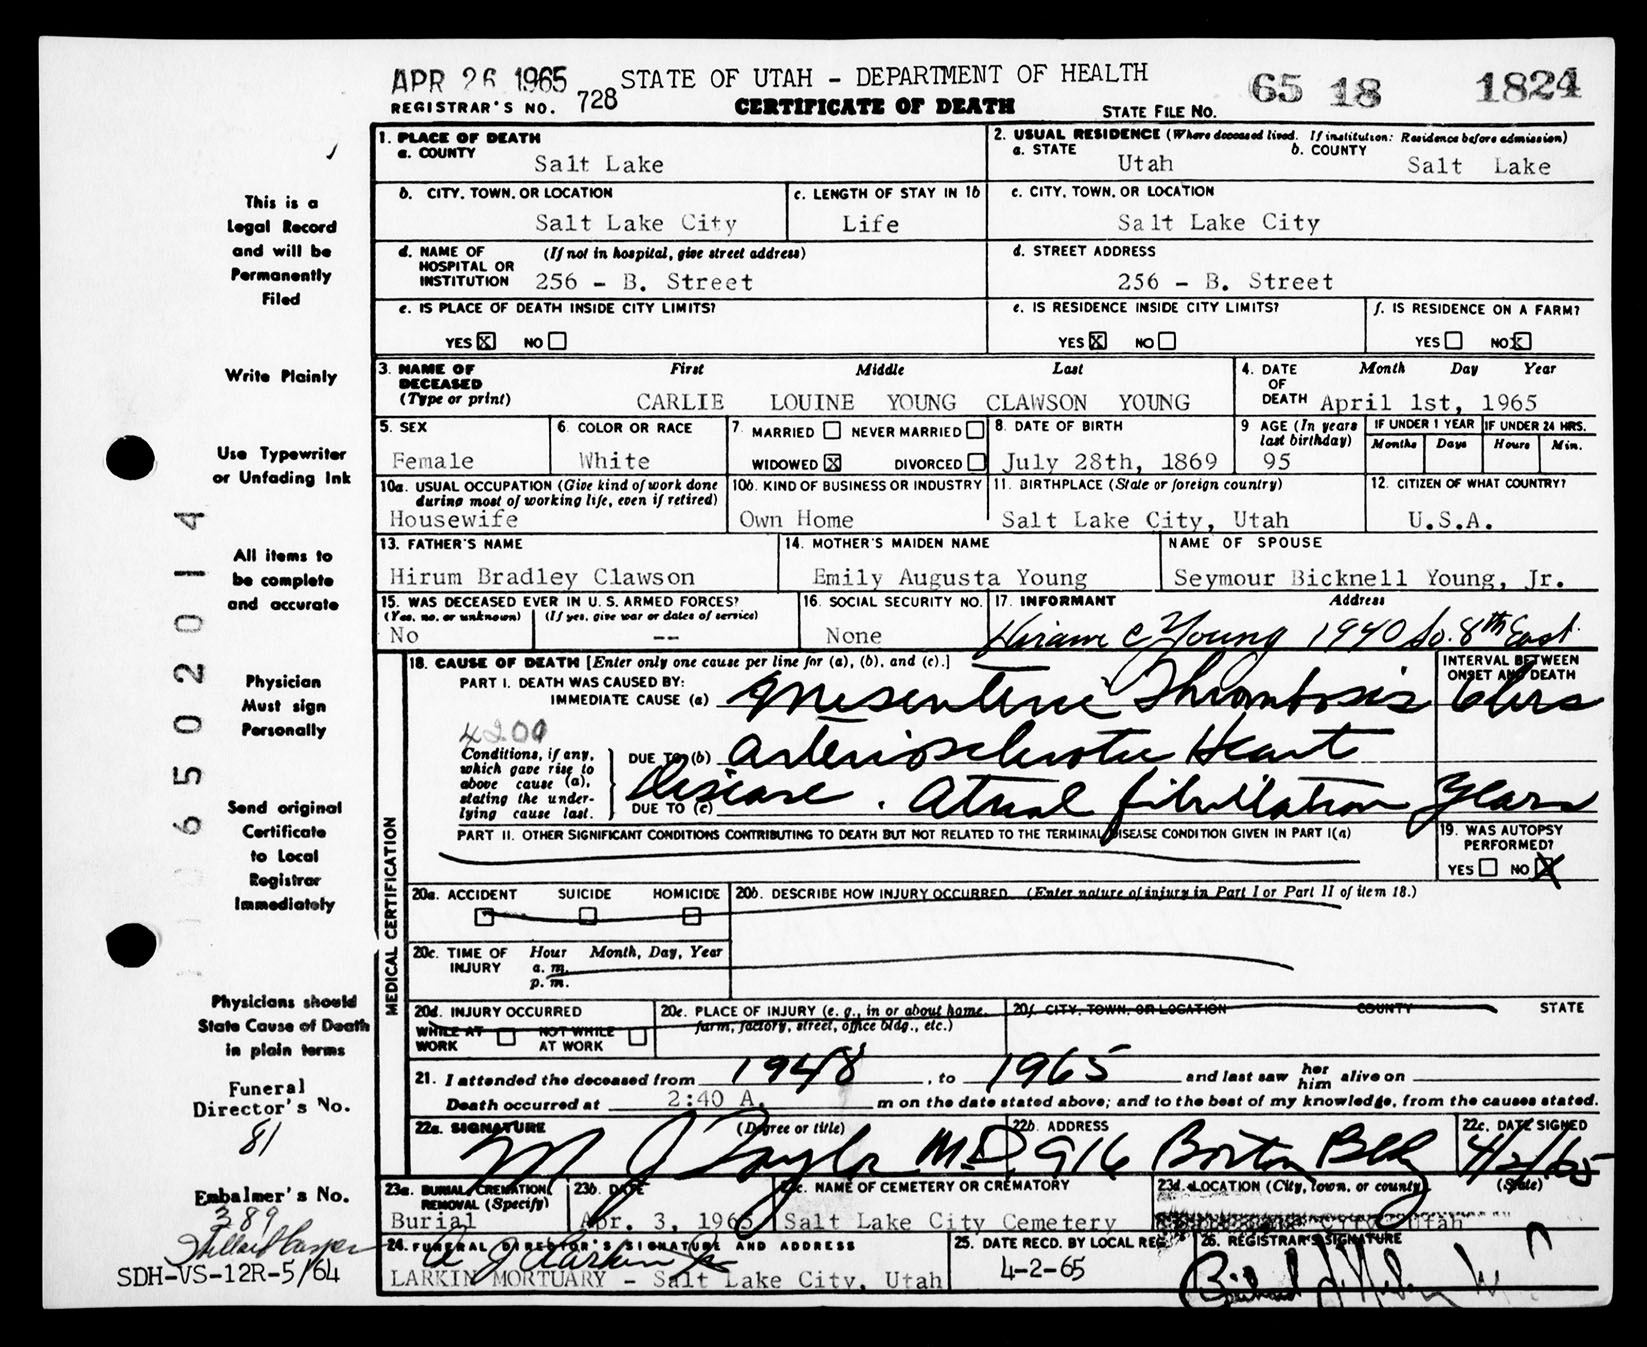 APR 26 1965 STATE OF UTAH - DEPARTMENT OF HEALTH 65 18 1824
REGISTRAR'S NO. 728 CERTIFICATE OF DEATH STATE FILE NO.
1. PLACE OF DEATH
a. COUNTY
Salt Lake
2. USUAL RESIDENCE (Where deceased lived. If institution: Residence before admission)
a. STATE b. COUNTY
Utah Salt Lake
b. CITY, TOWN, OR LOCATION
Salt Lake City
c. LENGTH OF STAY IN 1b
Life
c. CITY, TOWN, OR LOCATION
Salt Lake City
d. NAME OF HOSPITAL OR INSTITUTION (If not in hospital, give street address)
256 - B. Street
d. STREET ADDRESS
256 - B. Street
e. IS PLACE OF DEATH INSIDE CITY LIMITS?
YES X NO
e. IS RESIDENCE INSIDE CITY LIMITS?
YES X NO
f. IS RESIDENCE ON A FARM?
YES NO X
3. NAME OF DECEASED (Type or print) First Middle Last
CARLIE LOUINE YOUNG CLAWSON YOUNG
4. DATE OF DEATH Month Day Year
April 1st, 1965
5. SEX
Female
6. COLOR OR RACE
White
7. MARRIED NEVER MARRIED
WIDOWED X DIVORCED
8. DATE OF BIRTH
July 28th, 1869
9 AGE (In years last birthday)
95
IF UNDER 1 YEAR
Months Days
IF UNDER 24 HRS.
Hours Min.
10a. USUAL OCCUPATION (Give kind of work done during most of working life, even if retired)
Housewife
10b. KIND OF BUSINESS OR INDUSTRY
Own Home
11. BIRTHPLACE (State or foreign country)
Salt Lake City, Utah
12. CITIZEN OF WHAT COUNTRY?
U.S.A.
13. FATHER'S NAME
Hirum Bradley Clawson
14. MOTHER'S MAIDEN NAME
Emily Augusta Young
NAME OF SPOUSE
Seymour Bicknell Young, Jr.
15. WAS DECEASED EVER IN U.S. ARMED FORCES?
(Yes, no, or unknown) (If yes, give war or dates of service)
No --
16. SOCIAL SECURITY NO.
None
17. INFORMANT Address
Hiram C Young 1940 So. 8th East
MEDICAL CERTIFICATION
18. CAUSE OF DEATH [Enter only one cause per line for (a), (b), and (c).]
INTERVAL BETWEEN ONSET AND DEATH
PART I. DEATH WAS CAUSED BY:
IMMEDIATE CAUSE (a) Mesenteric Thrombosis 6 hrs
4200
Conditions, if any, which gave rise to above cause (a), stating the underlying cause last.
DUE TO (b) Arteriosclerotic Heart
DUE TO (c) Disease. Atrial fibrillation Years
PART II. OTHER SIGNIFICANT CONDITIONS CONTRIBUTING TO DEATH BUT NOT RELATED TO THE TERMINAL DISEASE CONDITION GIVEN IN PART I(a)
19. WAS AUTOPSY PERFORMED?
YES NO X
20a. ACCIDENT SUICIDE HOMICIDE
20b. DESCRIBE HOW INJURY OCCURRED (Enter nature of injury in Part I or Part II of item 18.)
20c. TIME OF INJURY Hour Month, Day, Year
a. m.
p. m.
20d. INJURY OCCURRED
WHILE AT WORK NOT WHILE AT WORK
20e. PLACE OF INJURY (e. g., in or about home, farm, factory, street, office bldg., etc.)
20f. CITY, TOWN, OR LOCATION COUNTY STATE
21. I attended the deceased from 1948, to 1965 and last saw her him alive on
Death occurred at 2:40 A. m on the date stated above; and to the best of my knowledge, from the causes stated.
22a. SIGNATURE (Degree or title)
M J Taylor M.D.
22b. ADDRESS
916 Boston Bldg
22c. DATE SIGNED
4/2/65
23a. BURIAL, CREMATION, REMOVAL (Specify)
Burial
23b. DATE
Apr. 3, 1965
23c. NAME OF CEMETERY OR CREMATORY
Salt Lake City Cemetery
23d. LOCATION (City, town, or county) (State)
City, Utah
24. FUNERAL DIRECTOR'S SIGNATURE AND ADDRESS
LARKIN MORTUARY - Salt Lake City, Utah
25. DATE RECD. BY LOCAL REG.
4-2-65
26. REGISTRAR'S SIGNATURE
This is a
Legal Record
and will be
Permanently
Filed
Write Plainly
Use Typewriter
or Unfading Ink
All items to
be complete
and accurate
Physician
Must sign
Personally
Send original
Certificate
to Local
Registrar
Immediately
Physicians should
State Cause of Death
in plain terms
Funeral
Director's No.
81
Embalmer's No.
389
SDH-VS-12R-5/64
06502014